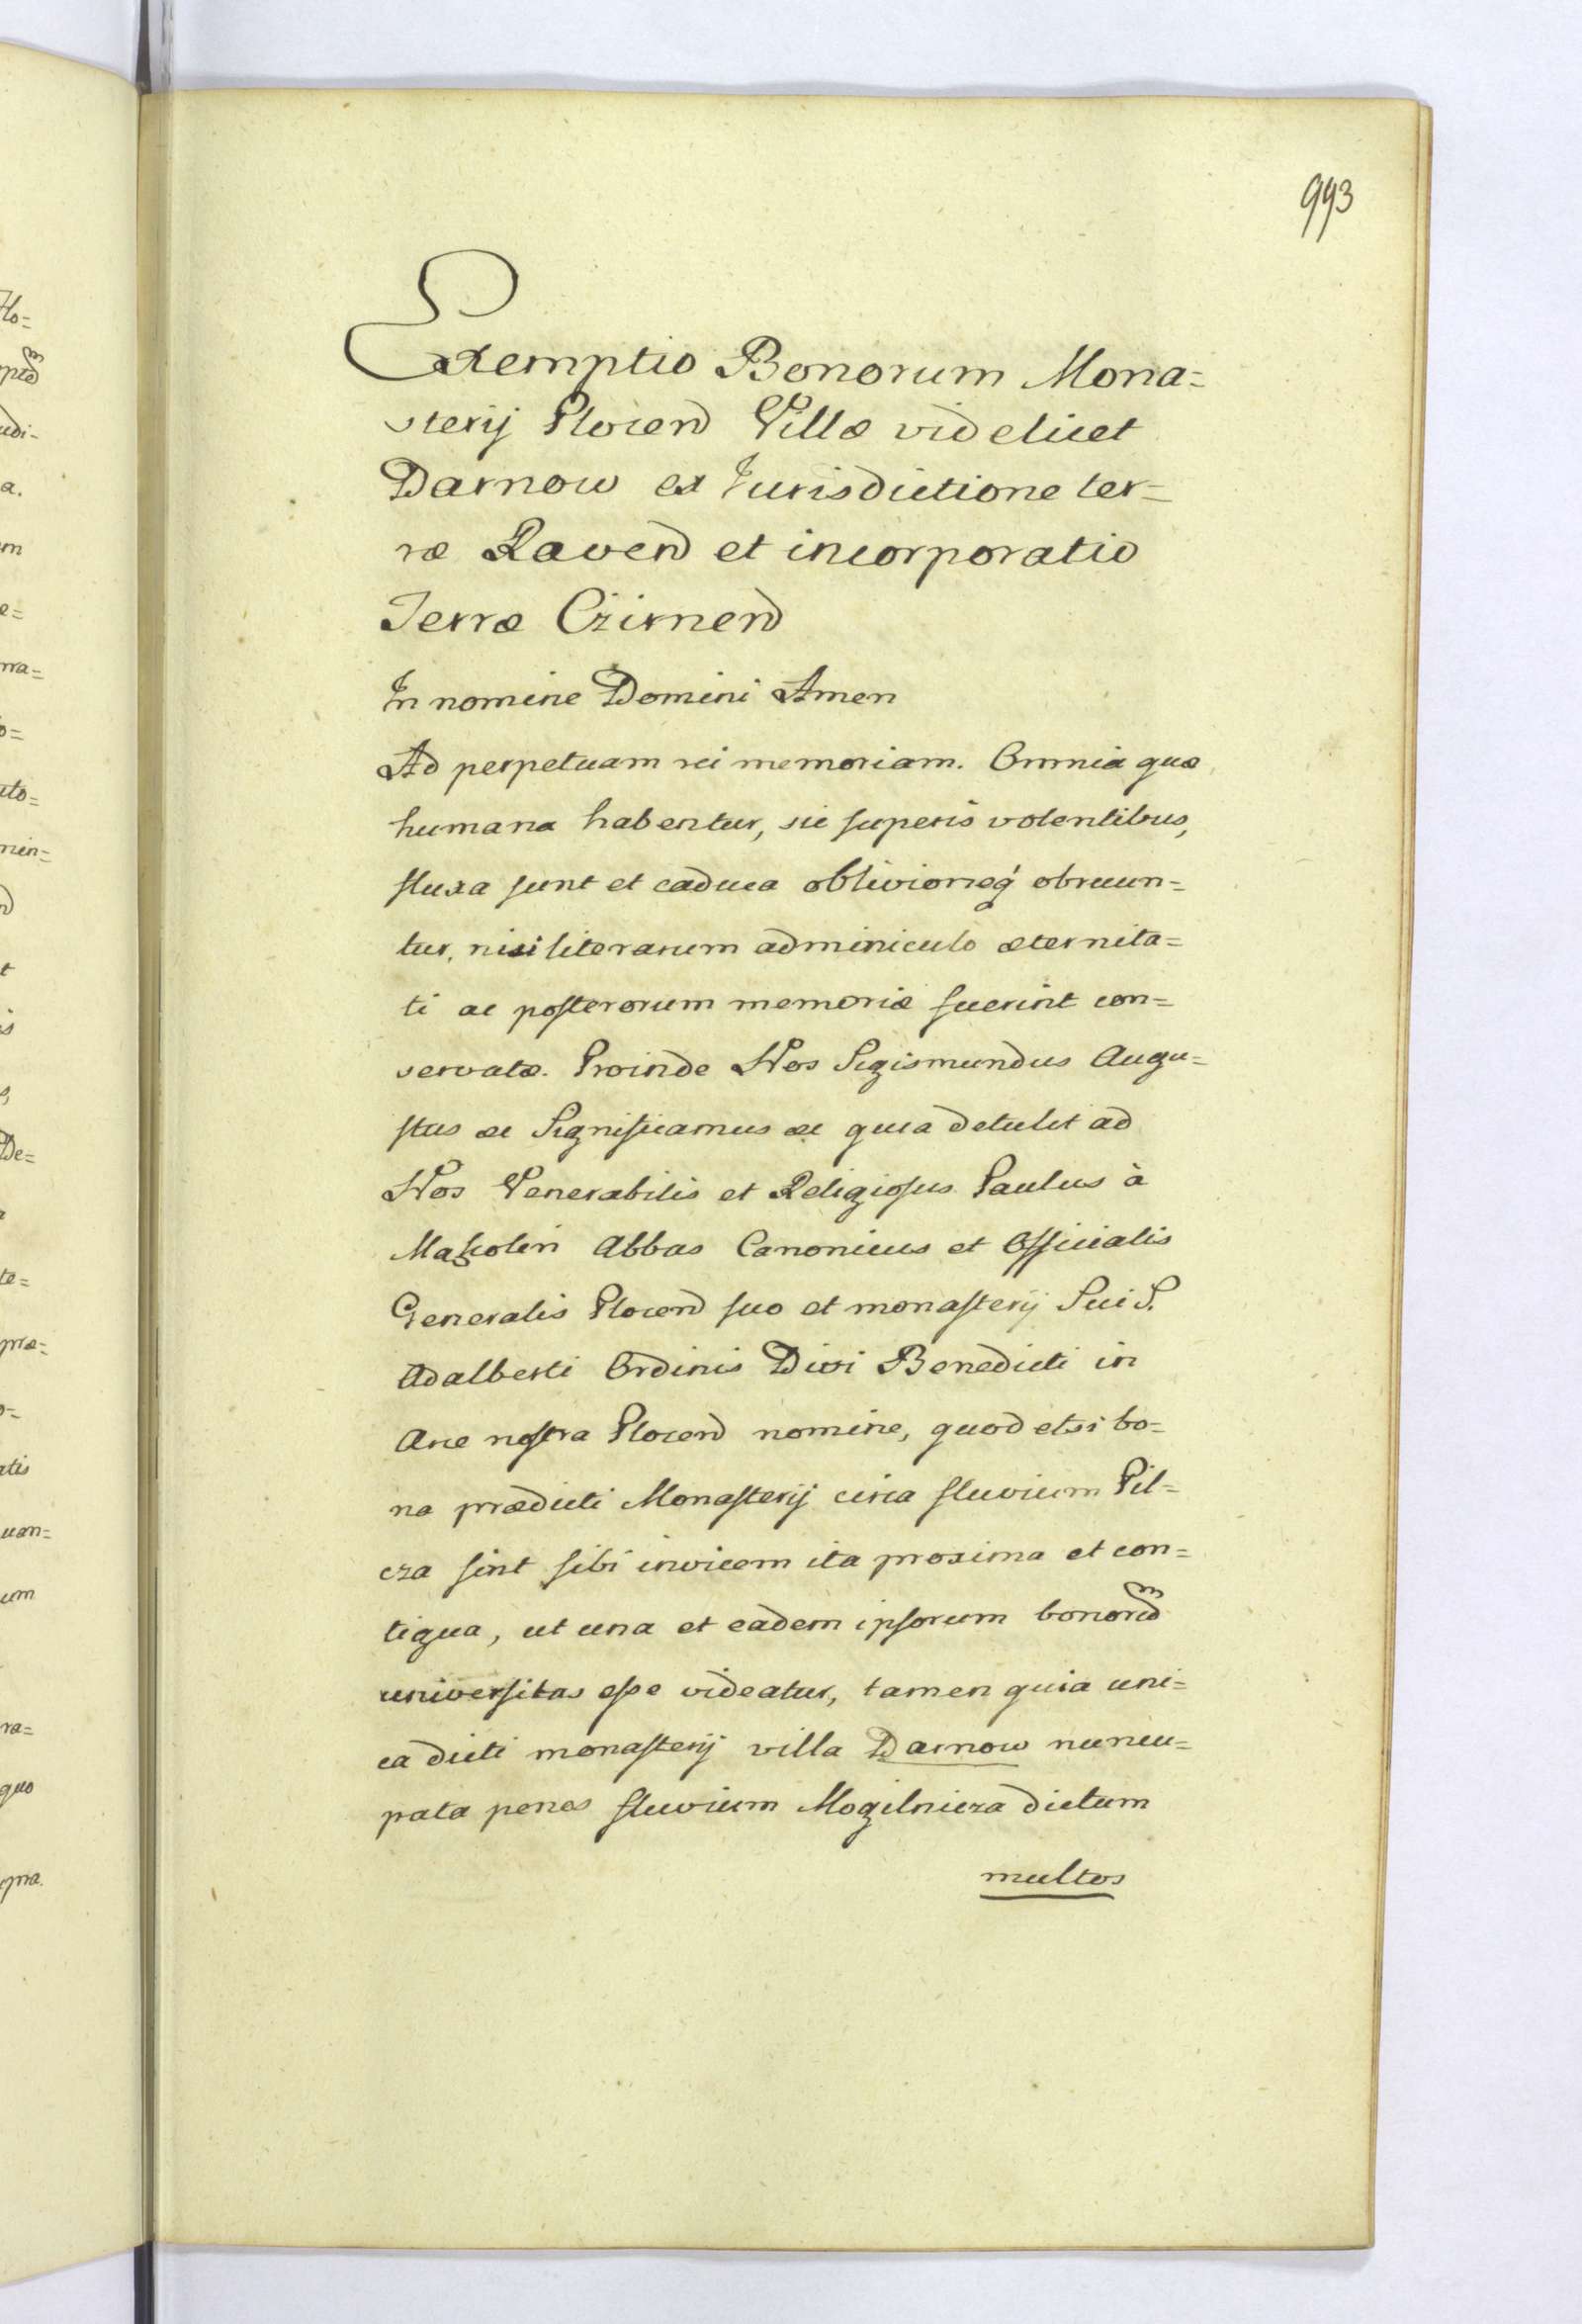 993
Exemptio Bonorum Mona=
sterij Plocen Villæ videlicet
Darnow ex Jurisdictione ter=
ræ Raven et incorporatio
Terræ Czirnen
In nomine Domini Amen
Ad perpetuam rei memoriam. Omnia quæ
humana habentur, sic superis volentibus,
fluxa sunt et caduca oblivioneq obruun=
tur, nisi literarum adminiculo æternita=
ti ac posterorum memoriæ fuerint con=
servatæ. Proinde Nos Sigismundus Augu=
stus &c Significamus &c quia detulit ad
Nos Venerabilis et Religiosus Paulus à
Abbas Canonicus et Officialis
Generalis Plocen suo et monasterij Sui S.
Adalberti Ordinis Divi Benedicti in
Arce nostra Plocen nomine, quod etsi bo=
na prædicti Monasterij circa fluvium Pil=
cza sint sibi invicem ita proxima et con=
tigua, ut una et eadem ipsorum bonorum
universitas esse videatur, tamen quia uni=
ca dicti monasterij villa Darnow nuncu=
pata penes fluvium Mogilnicza dictum
multos